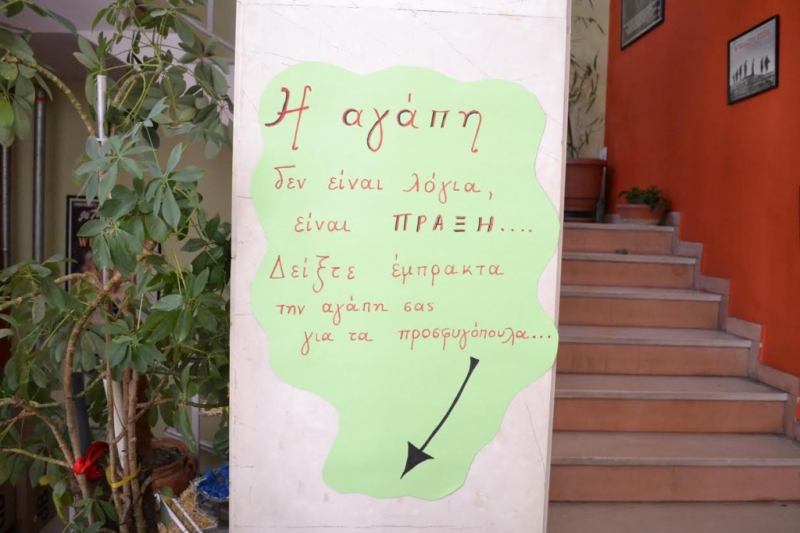 Η αγάπη
δεν είναι λόγια,
είναι ΠΡΑΞΗ....
Δείξτε έμπρακτα
την αγάπη σας
για τα προσφυγόπουλα...